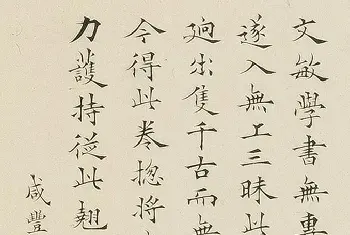 文敏學書無專
遂入無上三昧此
迥出隻千古而無
今得此卷揔將
力護持從此翘
咸豐